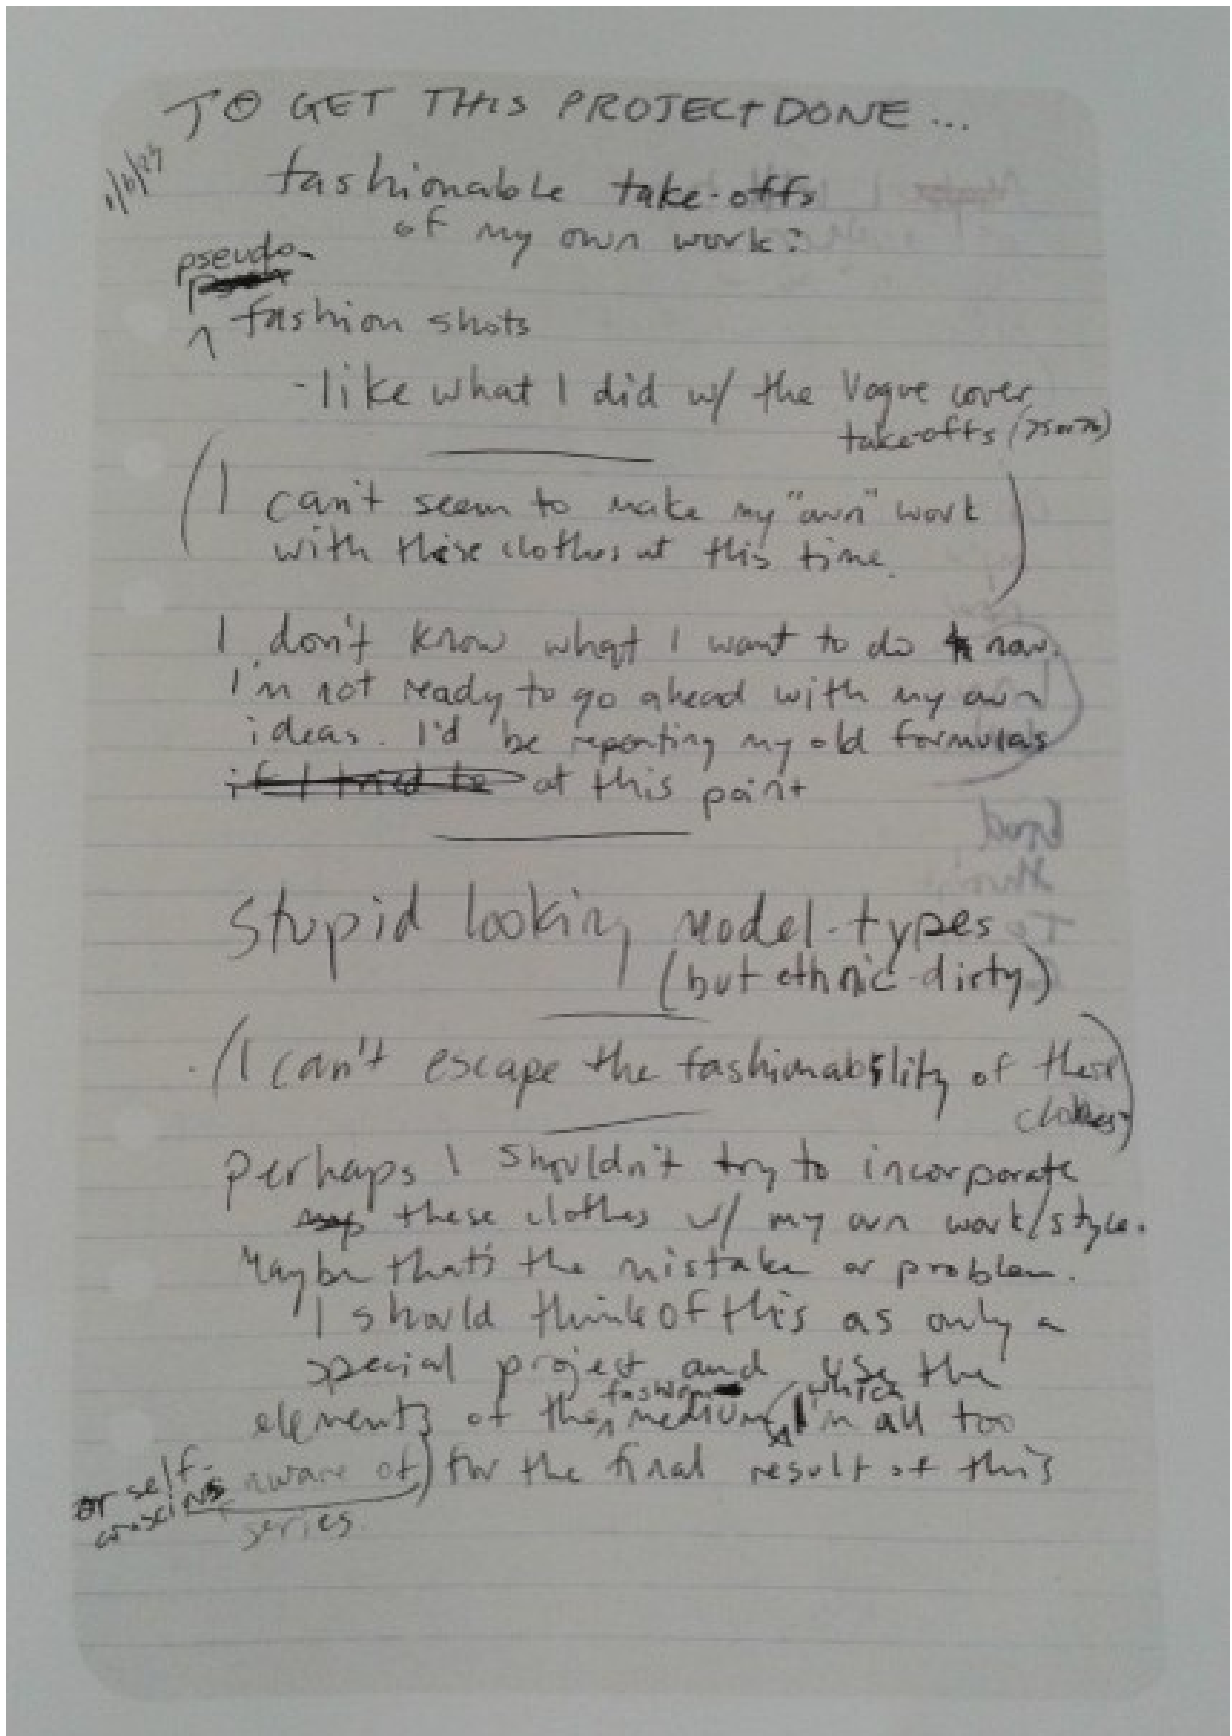 TO GET THIS PROJECT DONE ...
fashionable take-offs
of my own work:
pseudo-
fashion shots
-like what I did w/ the Vogue cover
take-offs (75 or 76)
(I can't seem to make my "own" work
with these clothes at this time.)
I don't know what I want to do now.
I'm not ready to go ahead with my own
ideas. I'd be repeating my old formulas
if I tried to at this point
Stupid looking model-types
(but ethnic-dirty)
(I can't escape the fashionability of these
clothes)
Perhaps I shouldn't try to incorporate
these clothes w/ my own work/style.
Maybe that's the mistake or problem.
I should think of this as only a
special project and use the
elements of the fashion medium (which I'm all too
aware of) for the final result of this
or self-
conscious
series